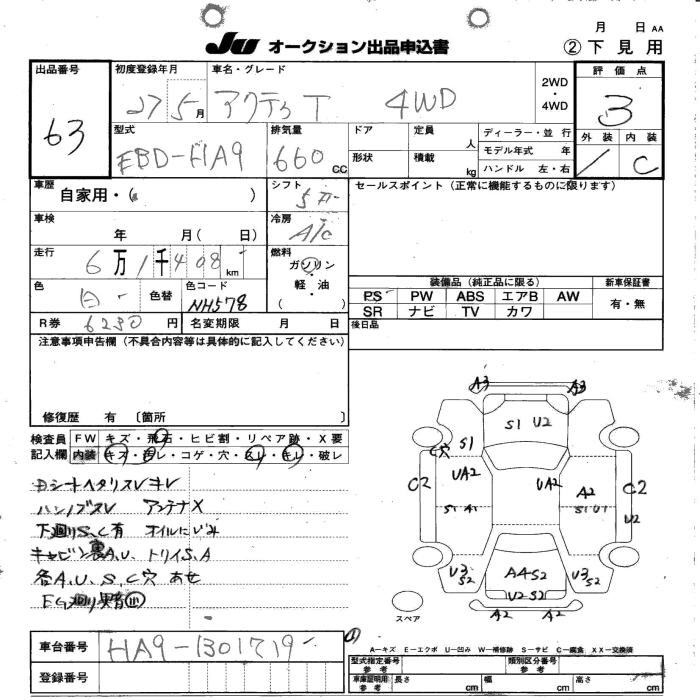 月 日 AA
JU オークション出品申込書 ②下見用
出品番号 初度登録年月 車名・グレード 2WD・4WD 評価点
63 27 5月 アクティT 4WD 3
型式 排気量 ドア 定員 人 ディーラー・並行 外装 内装
EBD-HA9 660 CC 形状 積載 kg モデル年式 年 C
ハンドル 左・右
車歴 自家用・( ) シフト 5F セールスポイント(正常に機能するものに限ります)
車検 年 月( 日) 冷房 A/C
走行 6万1千408km 燃料 ガソリン・軽油 ( )
装備品(純正品に限る) 新車保証書
色 白 色替 色コード NH578 PS PW ABS エアB AW 有・無
SR ナビ TV カワ
R券 6230円 名変期限 月 日 後日品
注意事項申告欄(不具合内容等は具体的に記入してください)
修復歴 有 〔箇所 〕
検査員 FW キズ・飛石・ヒビ割・リペア跡・X要
記入欄 内装 キズ・汚レ・コゲ・穴・スレ・キレ・破レ
Dシートヘタリスレキレ
ハンドルスレ アンテナX
下廻りS、C有 オイルにじみ
キャビン裏A.U. トリイS.A
各A.U.S.C穴 あせ
EG廻り異音
A3 A3
S1 U2
C穴 S1
C2 UA2 UA2 A2 C2
S1 A1 S1 U1 U2
U3 S2 A4 S2 U3 S2
U2 S2
A2 A2
スペア
車台番号 HA9-1301719
登録番号
A-キズ E-エクボ U-凹み W-補修跡 S-サビ C-腐食 XX-交換済
型式指定番号 参考 類別区分番号 参考
車庫証明用 参考 長さ cm 幅 cm 高さ cm